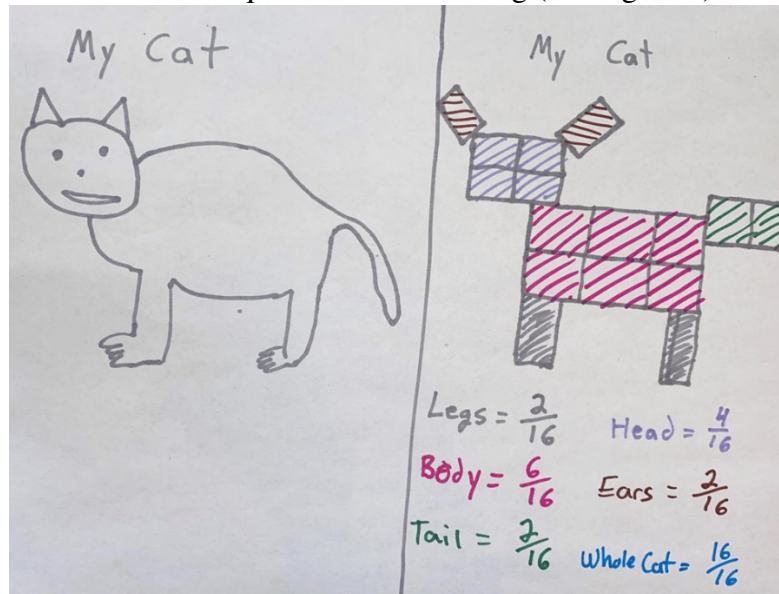 My Cat
My Cat
Legs = 2/16
Head = 4/16
Body = 6/16
Ears = 2/16
Tail = 2/16
Whole Cat = 16/16